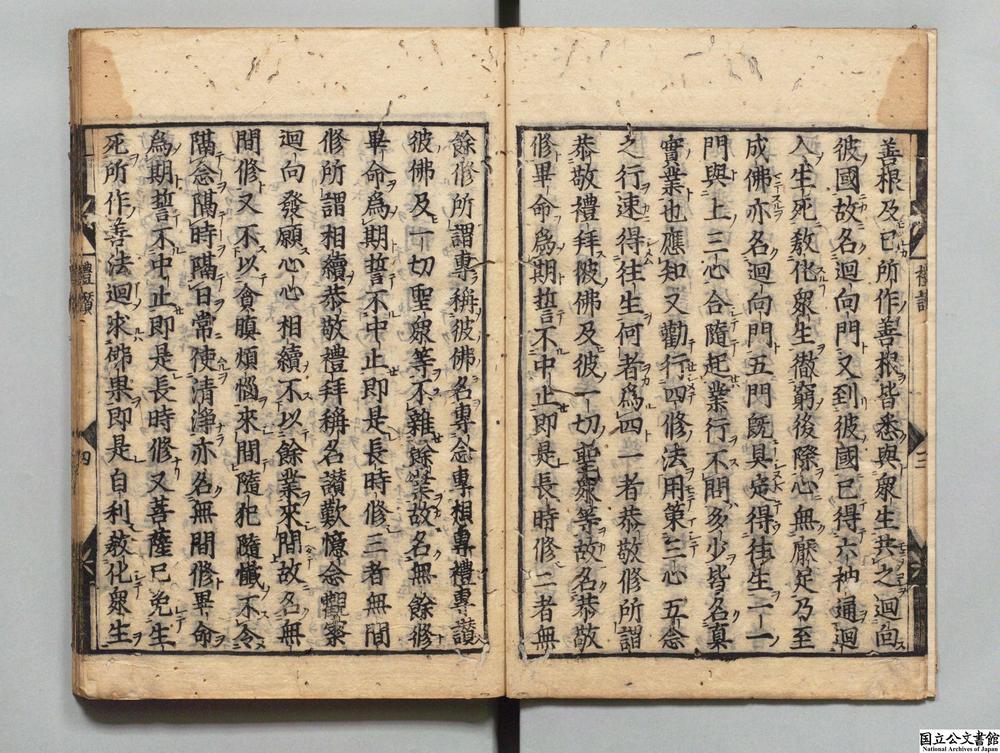 善根及已所作善根皆悉與眾生共之迴向
彼國故名迴向門又到彼國已得六神通迴
入生死教化眾生徹窮後際心無厭足乃至
成佛亦名迴向門五門既具定得往生一一
門與上三心合隨起業行不問多少皆名真
實業也應知又勸行四修法用策三心五念
之行速得往生何者為四一者恭敬修所謂
恭敬禮拜彼佛及彼一切聖眾等故名恭敬
修畢命為期誓不中止即是長時修二者無
餘修所謂專稱彼佛名專念專想專禮專讃
彼佛及一切聖眾等不雜餘業故名無餘修
畢命為期誓不中止即是長時修三者無間
修所謂相續恭敬禮拜稱名讃歎憶念觀察
迴向發願心心相續不以餘業來間故名無
間修又不以貪瞋煩惱來間隨犯隨懺不令
隔念隔時隔日常使清淨亦名無間修畢命
為期誓不中止即是長時修又菩薩已免生
死所作善法迴求佛果即是自利教化眾生
禮讃
三
禮讃
四
国立公文書館
National Archives of Japan